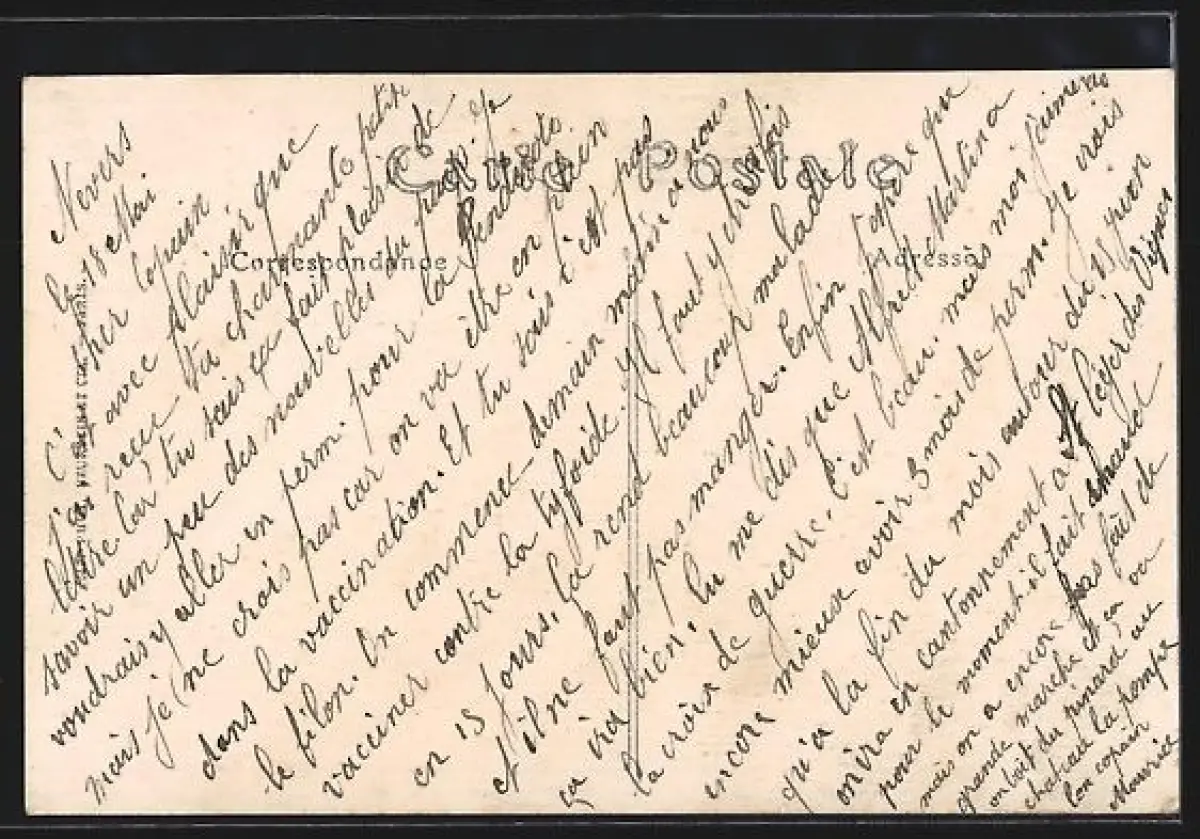 Carte Postale
Correspondance
Adresse
Nevers
le 18 Mai
Cher Copain
J'ai avec plaisir que
reçue ta charmante petite
lettre. Car, tu sais ça fait plaisir de
savoir un peu des nouvelles du pays. ça
voudrais y aller en perm. pour la Pentecôte
mais je ne crois pas car on va être en plein
dans la vaccination. Et tu sais c'est pas
le filon. On commence demain matin a nous
vacciner contre la tyfoide. Il faut y ch fois
en 15 jours. Ça rend beaucoup malade
et il ne faut pas manger. Enfin j'espère que
ça ira bien. Tu me dis que Alfred Martin a
la croix de guerre. C'est beau. mais moi j'aimerais
encore mieux avoir 3 mois de perm. Je crois
qu'a la fin du mois autour du 15 juin
on ira en cantonnement a St Léger des Vignes
pour le moment il fait chaud
mais on a encore pas fait de
grande marche et ça va
on boit du pinard au
chateau la pompe
Ton copain
Maurice